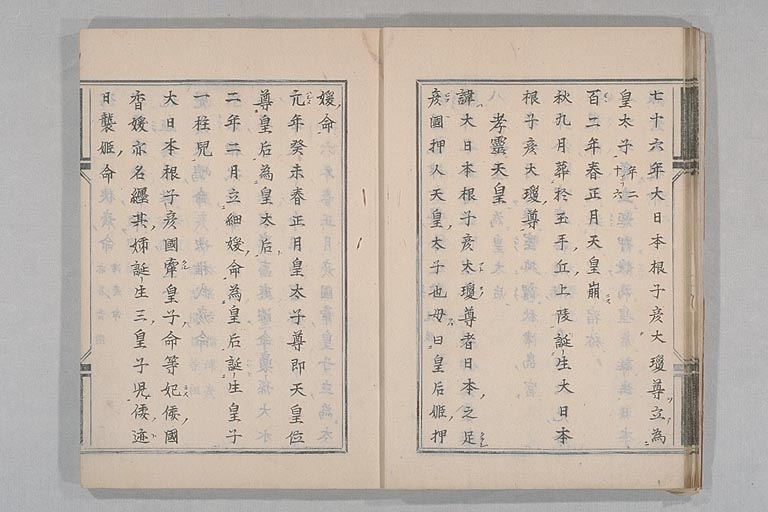 七十六年大日本根子彦大瓊尊立為
皇太子年二十六
百二年春正月天皇崩
秋九月葬於玉手丘上陵誕生大日本
根子彦大瓊尊
孝霊天皇
諱大日本根子彦太瓊尊者日本之足
彦國押人天皇太子也母曰皇后姫押
媛命
元年癸未春正月皇太子尊即天皇位
尊皇后為皇太后
二年二月立細媛命為皇后誕生皇子
一柱児
大日本根子彦國牽皇子命等妃倭國
香媛亦名縄其姉誕生三皇子児倭迹
日襲姫命